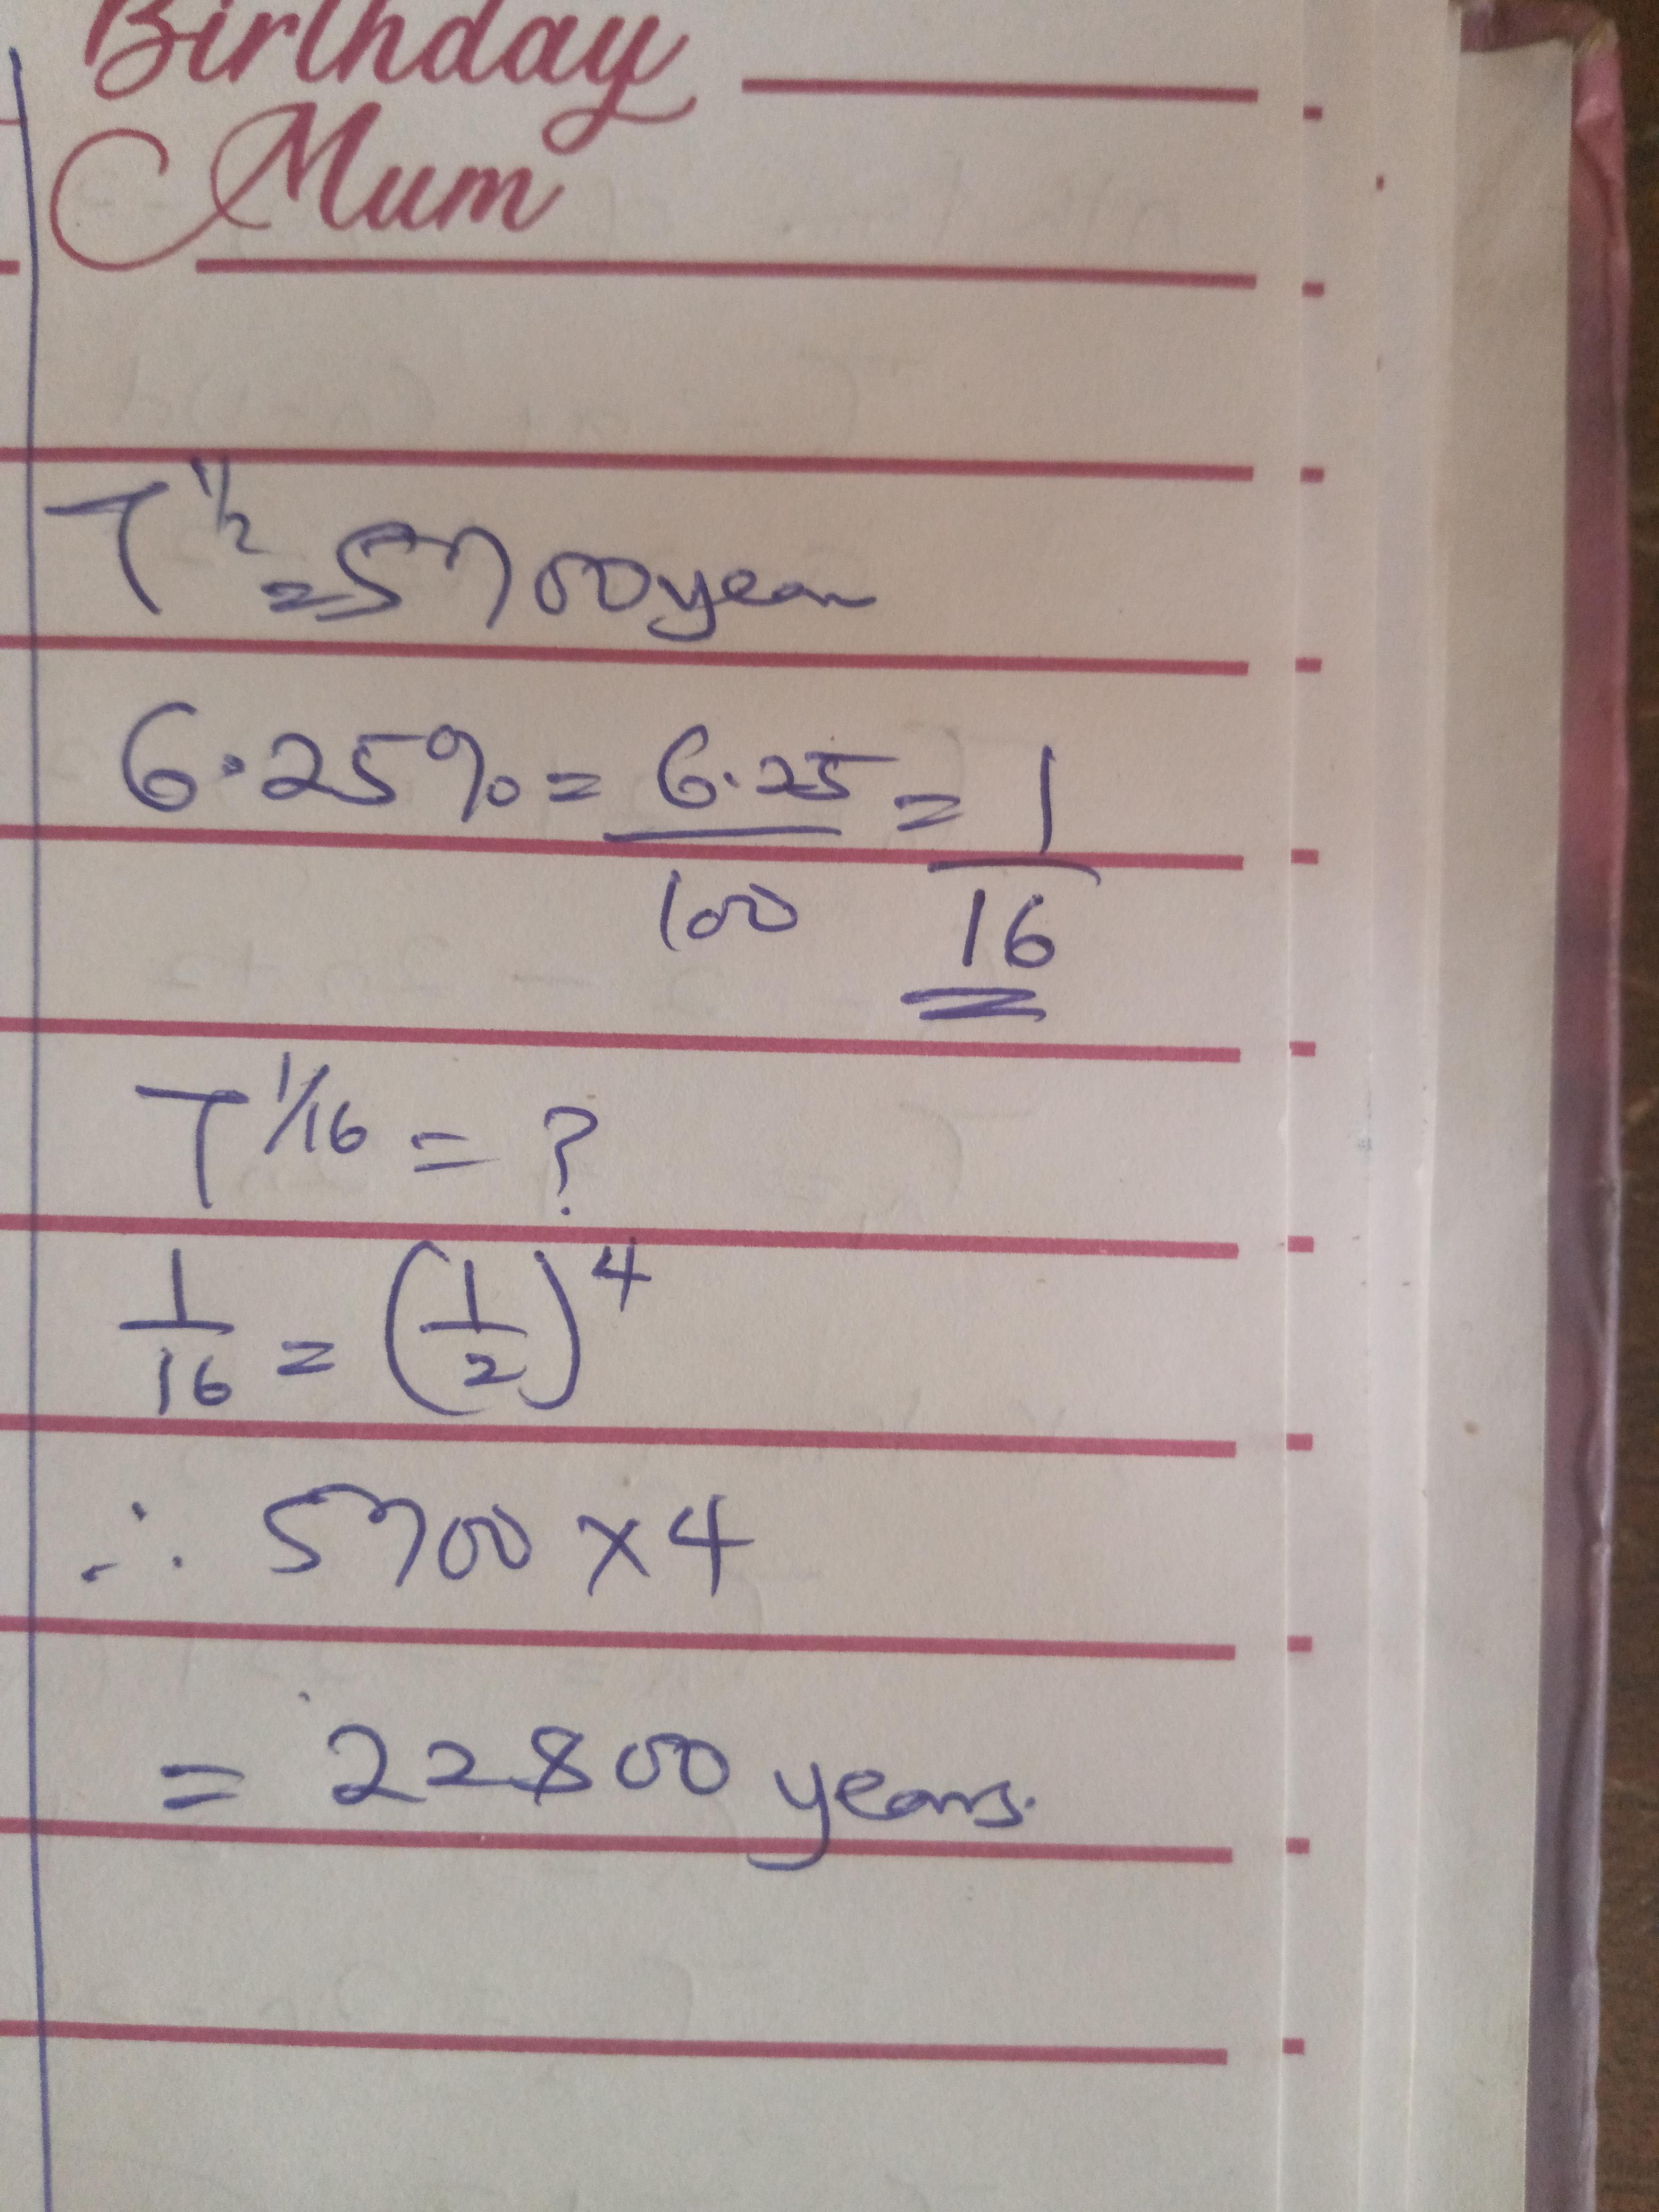 Birthday
Mum
T^1/2 = 5700 years
6.25% = 6.25/100 = 1/16
T^1/16 = ?
1/16 = (1/2)^4
∴ 5700 × 4
= 22800 years.